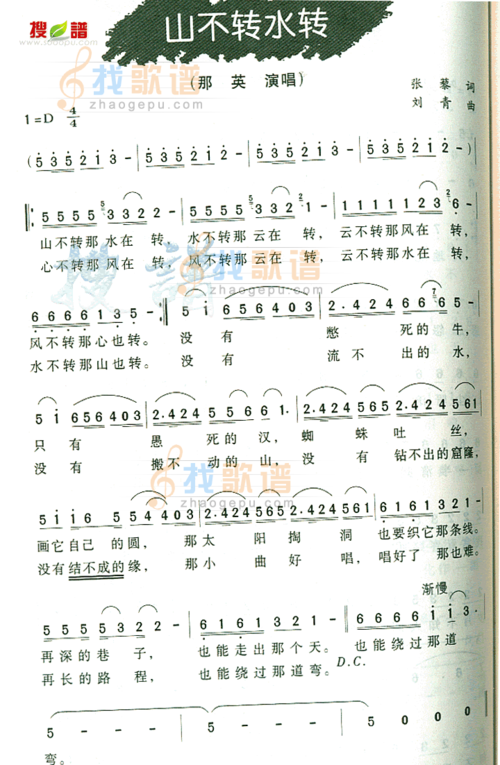 搜谱
www.sooopu.com
山不转水转
找歌谱
zhaogepu.com
(那 英 演唱)
张 藜 词
刘 青 曲
1=D 4/4
(535213- 535212- 535213- 535212-)
5555 3322- 5555 3322 1- 1111112 3 6-
山不转那水在转, 水不转那云在转, 云不转那风在转,
心不转那风在转, 风不转那云在转, 云不转那水在转,
6666135- 5i 656403 2·424 6665-
风不转那心也转。 没有 憋死的牛,
水不转那山也转。 没有 流不出的水,
5i 656403 2·424 55661· 2·424565 2·4244561
只有 愚死的汉, 蜘蛛吐丝,
没有 搬不动的山, 没有钻不出的窟窿,
5ii6 554403 2·424565 2·424561 61613 21-
画它自己的圆, 那太阳掏洞也要织它那条线。
没有结不成的缘, 那小曲好唱,唱好了那也难。
渐慢
5555 3322- 6161321- 6666 ii3·
再深的巷子, 也能走出那个天。也能绕过那道
再长的路程, 也能绕过那道弯。D.C.
5 - - - 5 - - - 5 0 0 0
弯。